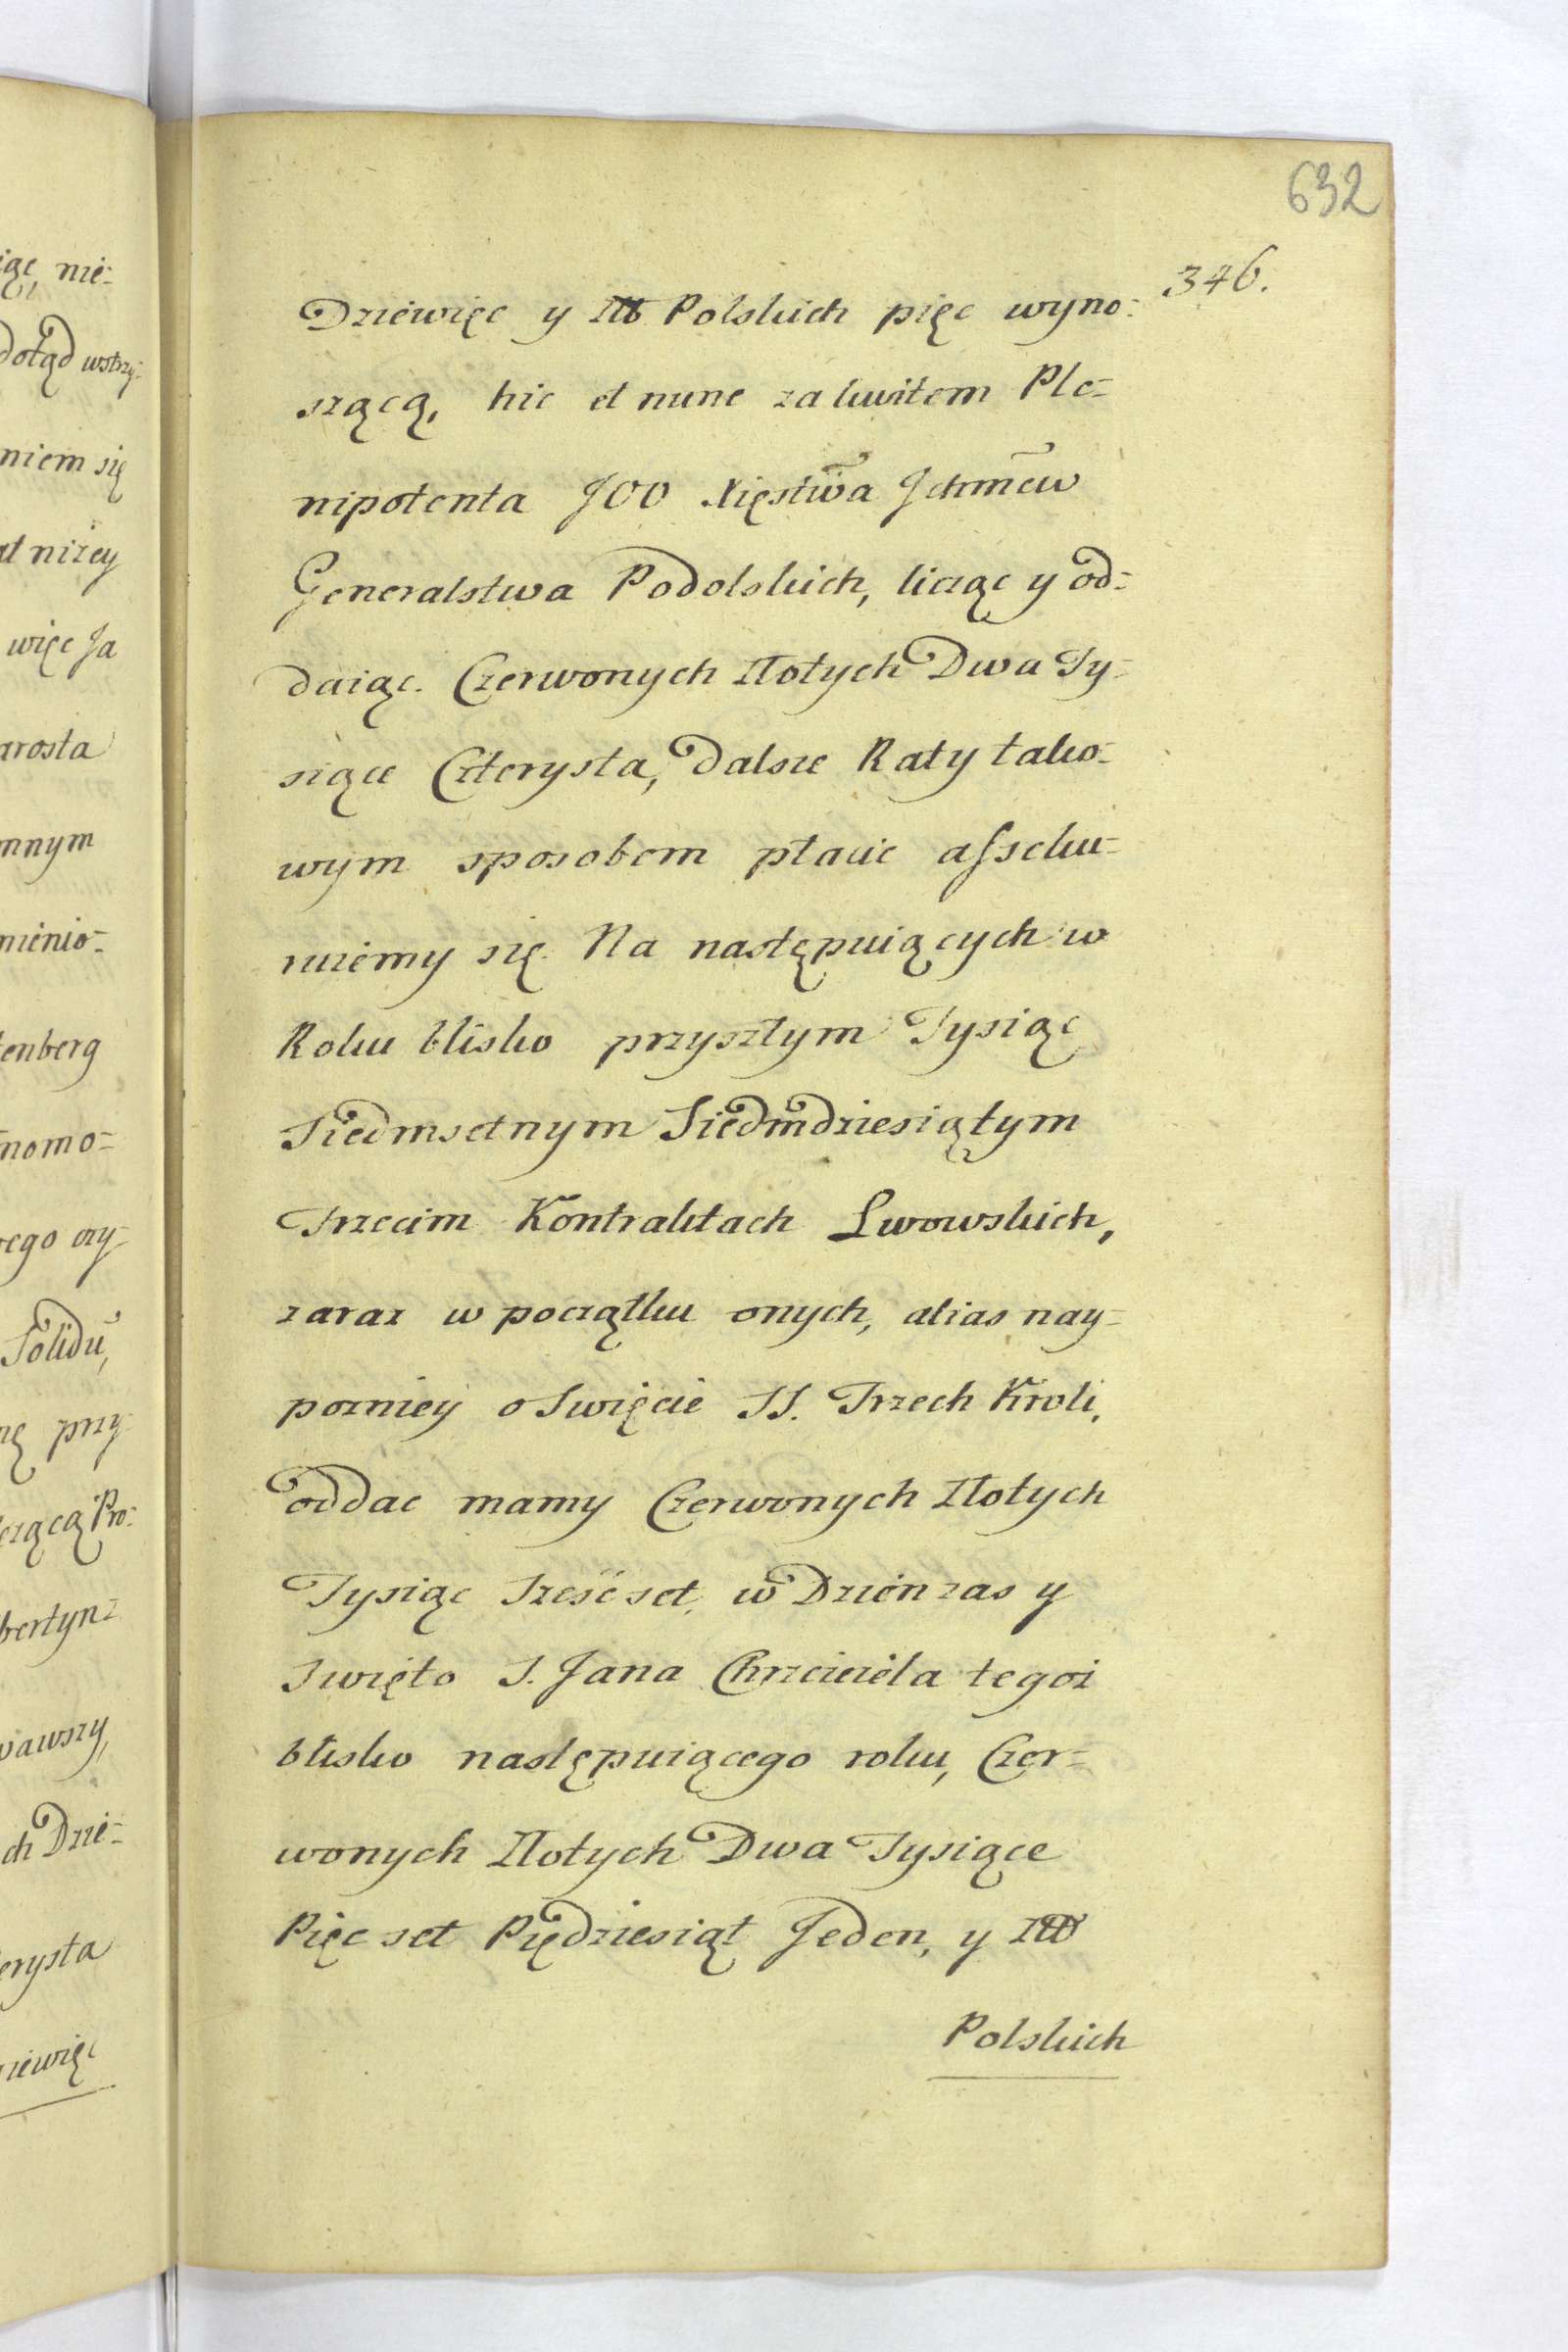 632
346.
Dziewięc y Zł Polskich pięc wyno=
szącą, hic et nunc za kwitem Ple=
nipotenta JOO Xięstwa Jchmćw
Generalstwa Podolskich, licząc y od=
daiąc. Czerwonych Złotych Dwa Ty=
siące Czterysta, dalsze Raty tako=
wym sposobem płacic asseku=
ruiemy się. Na następuiących w
Roku blisko przyszłym Tysiąc
Siedmsetnym Siedmdziesiątym
Trzecim Kontraktach Lwowskich,
zaraz w początku onych, alias nay=
pozniey o Swięcie SS. Trzech Kroli,
oddac mamy Czerwonych Złotych
Tysiąc Sześćset, w Dzień zas y
Swięto S. Jana Chrzciciela tegoż
blisko następuiącego roku, Czer=
wonych Złotych Dwa Tysiące
Pięcset Piędziesiąt Jeden, y Zł
Polskich
ąc, nie=
dotąd wstrzy=
niem się
niżey
więc Ja
arosta
mnym
mienio=
tenberg
nomo=
rego ory=
Solidū,
nę przy
rzącą Pro=
bertyn=
wawszy,
ch Dzie=
erysta
ziewięc